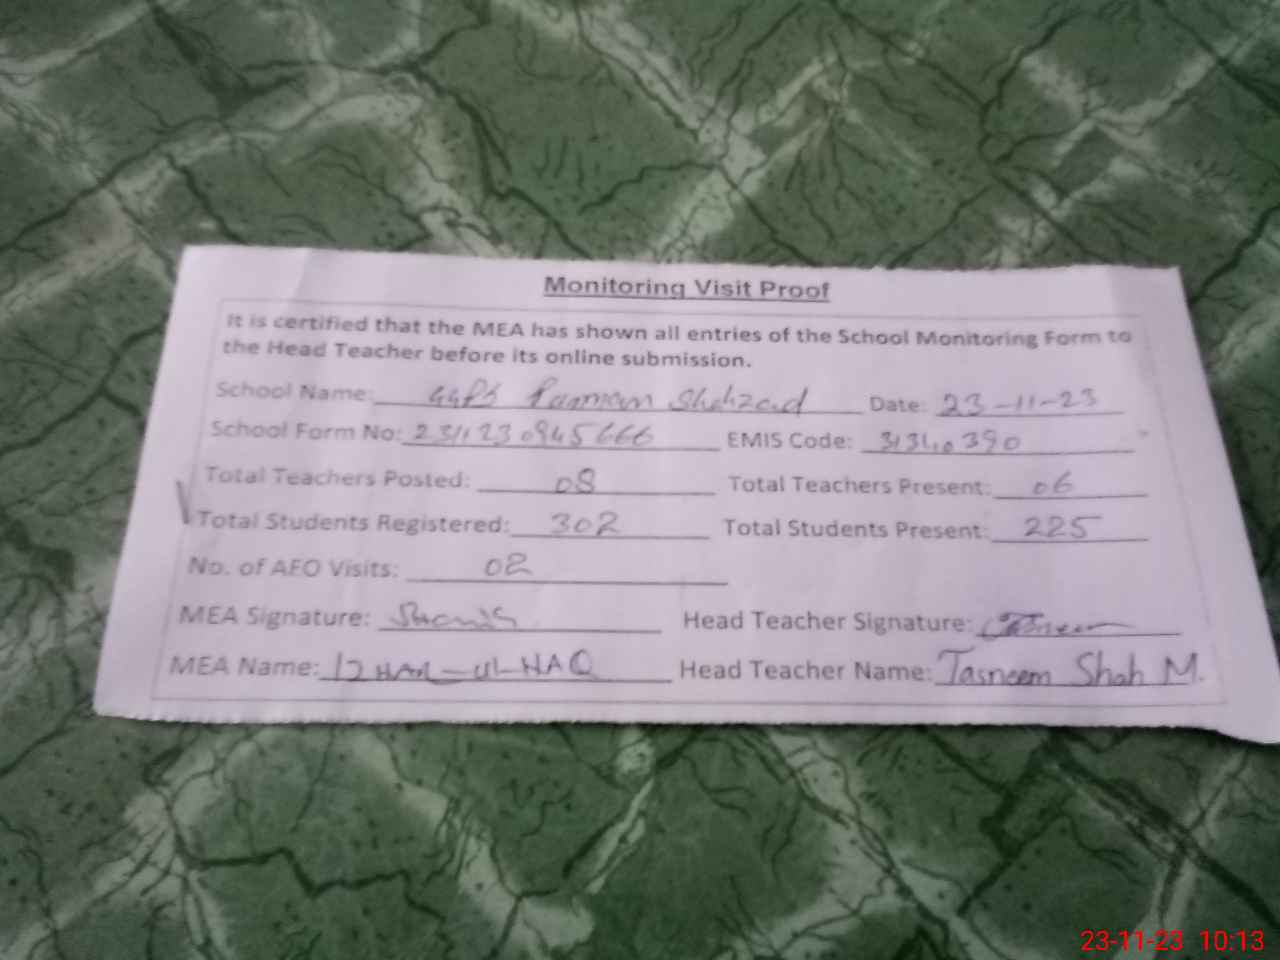 Monitoring Visit Proof
It is certified that the MEA has shown all entries of the School Monitoring Form to
the Head Teacher before its online submission.
School Name: GGPS Parman Shahzad Date: 23-11-23
School Form No: 2311230945666 EMIS Code: 31340390
Total Teachers Posted: 08 Total Teachers Present: 06
Total Students Registered: 302 Total Students Present: 225
No. of AEO Visits: 02
MEA Signature: Head Teacher Signature: Tasneem
MEA Name: IZHAR-ul-HAQ Head Teacher Name: Tasneem Shah M.
23-11-23 10:13